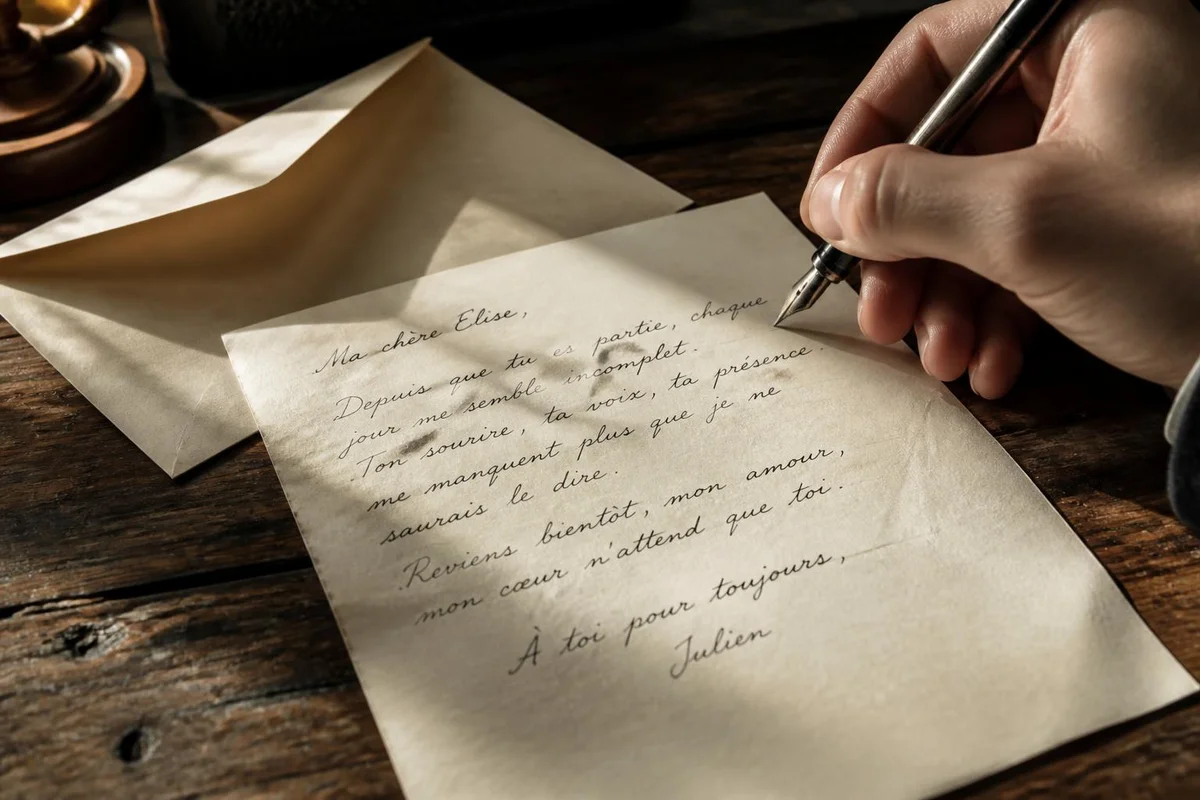 Ma chère Elise,
Depuis que tu es partie, chaque
jour me semble incomplet.
Ton sourire, ta voix, ta présence
me manquent plus que je ne
saurais le dire.
Reviens bientôt, mon amour,
mon cœur n'attend que toi.
À toi pour toujours,
Julien